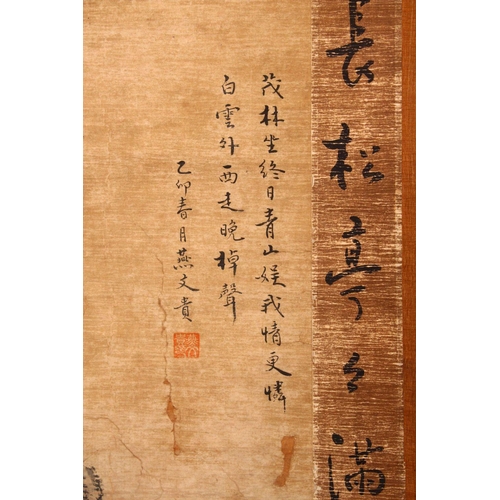 長松亭々滿
茂林坐終日青山娱我情更憐
白雲外西走晚棹聲
乙卯春月燕文貴